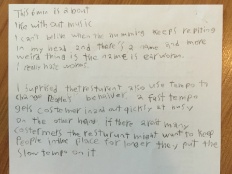 This 6min is about
like with out music
I can't belive when the humming keeps repiting
in my head and there's a name and more
weird thing is the name is earworm.
I realy hate worms.
I suprised the resturunt also use tempo to
change people's behavior. a fast tempo
gets costemer in and out quickly at busy
on the hour. if there arent many
costemers the resturunt might want to keep
people in the place for longer they put the
slow tempo on it